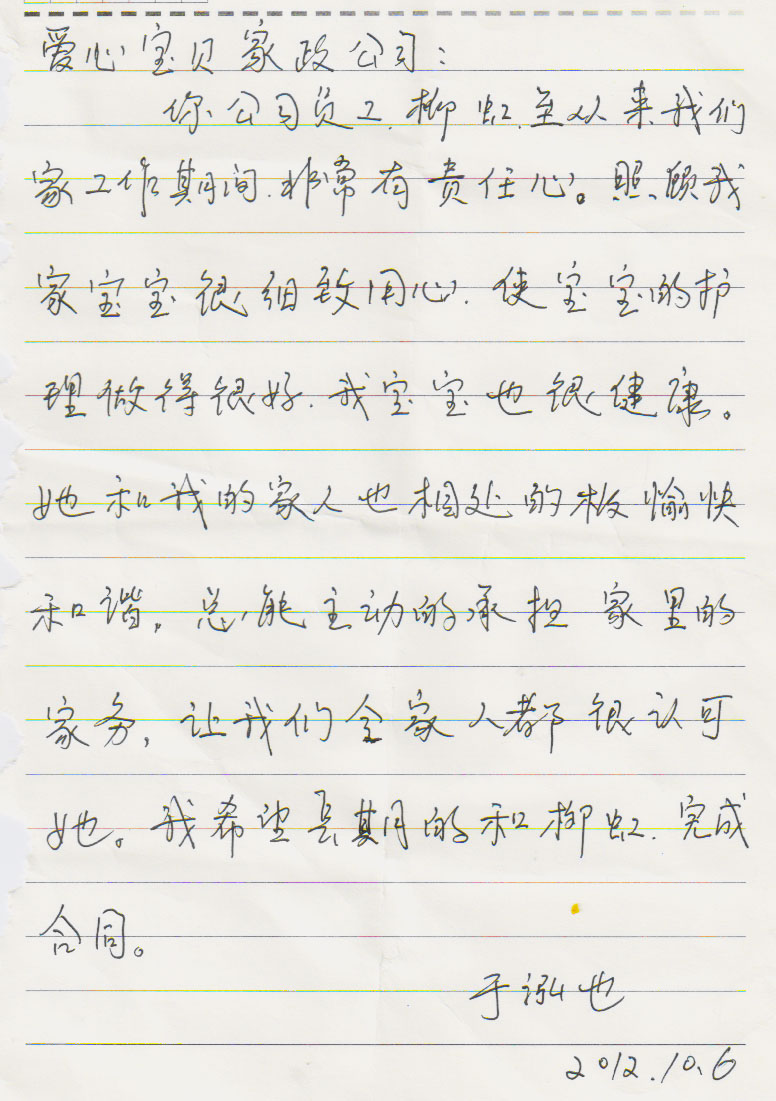 爱心宝贝家政公司：
你公司员工.柳虹.至从来我们
家工作期间.非常有责任心。照顾我
家宝宝很细致用心.使宝宝的护
理做得很好.我宝宝也很健康。
她和我的家人也相处的极愉快
和谐,总能主动的承担家里的
家务,让我们全家人都很认可
她。我希望长期的和柳虹.完成
合同。
于泓也
2012.10.6